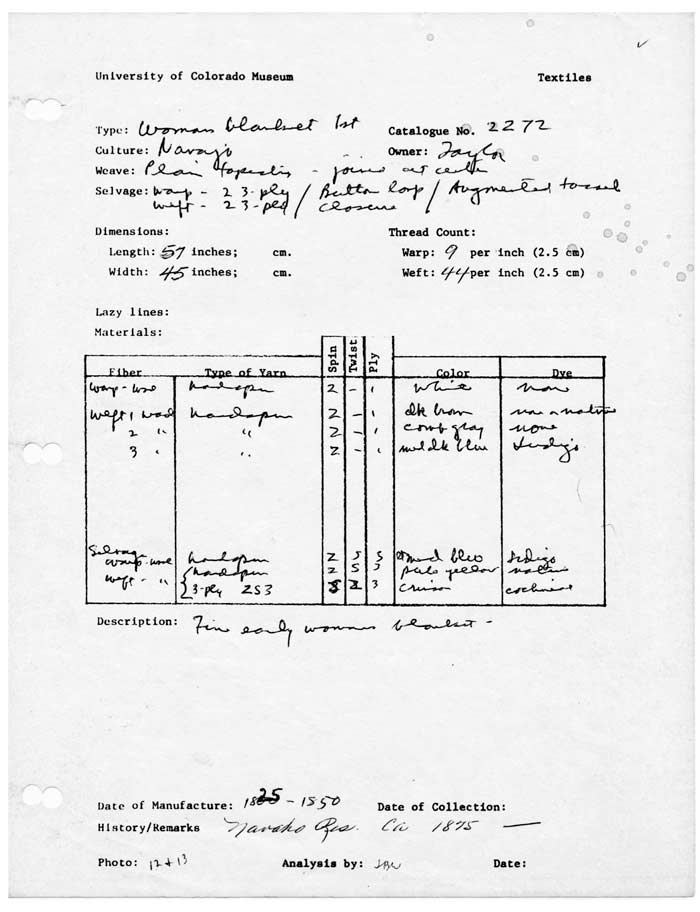 University of Colorado Museum Textiles
Type: Womans blanket 1st Catalogue No. 2272
Culture: Navajo Owner: Taylor
Weave: Plain tapestry - joins at center
Selvage: warp - 2 3-ply / Button loop / Augmented tassel
weft - 2 3-ply / closure
Dimensions: Thread Count:
Length: 57 inches; cm. Warp: 9 per inch (2.5 cm)
Width: 45 inches; cm. Weft: 44 per inch (2.5 cm)
Lazy lines:
Materials:
Fiber Type of Yarn Spin Twist Ply Color Dye
warp - wool handspun Z - 1 white none
weft 1 wool handspun Z - 1 dk brown native
2 " " Z - 1 comb gray none
3 " " Z - 1 med dk blue Indigo
Selvage
warp-wool handspun Z S 3 med blue Indigo
weft - " handspun Z S 3 pale yellow native
3-ply ZS3 S Z 3 crimson cochineal
Description: Fine early womans blanket -
Date of Manufacture: 1825 - 1850 Date of Collection:
History/Remarks Navaho Res. Ca 1875 —
Photo: 12 + 13 Analysis by: Date: